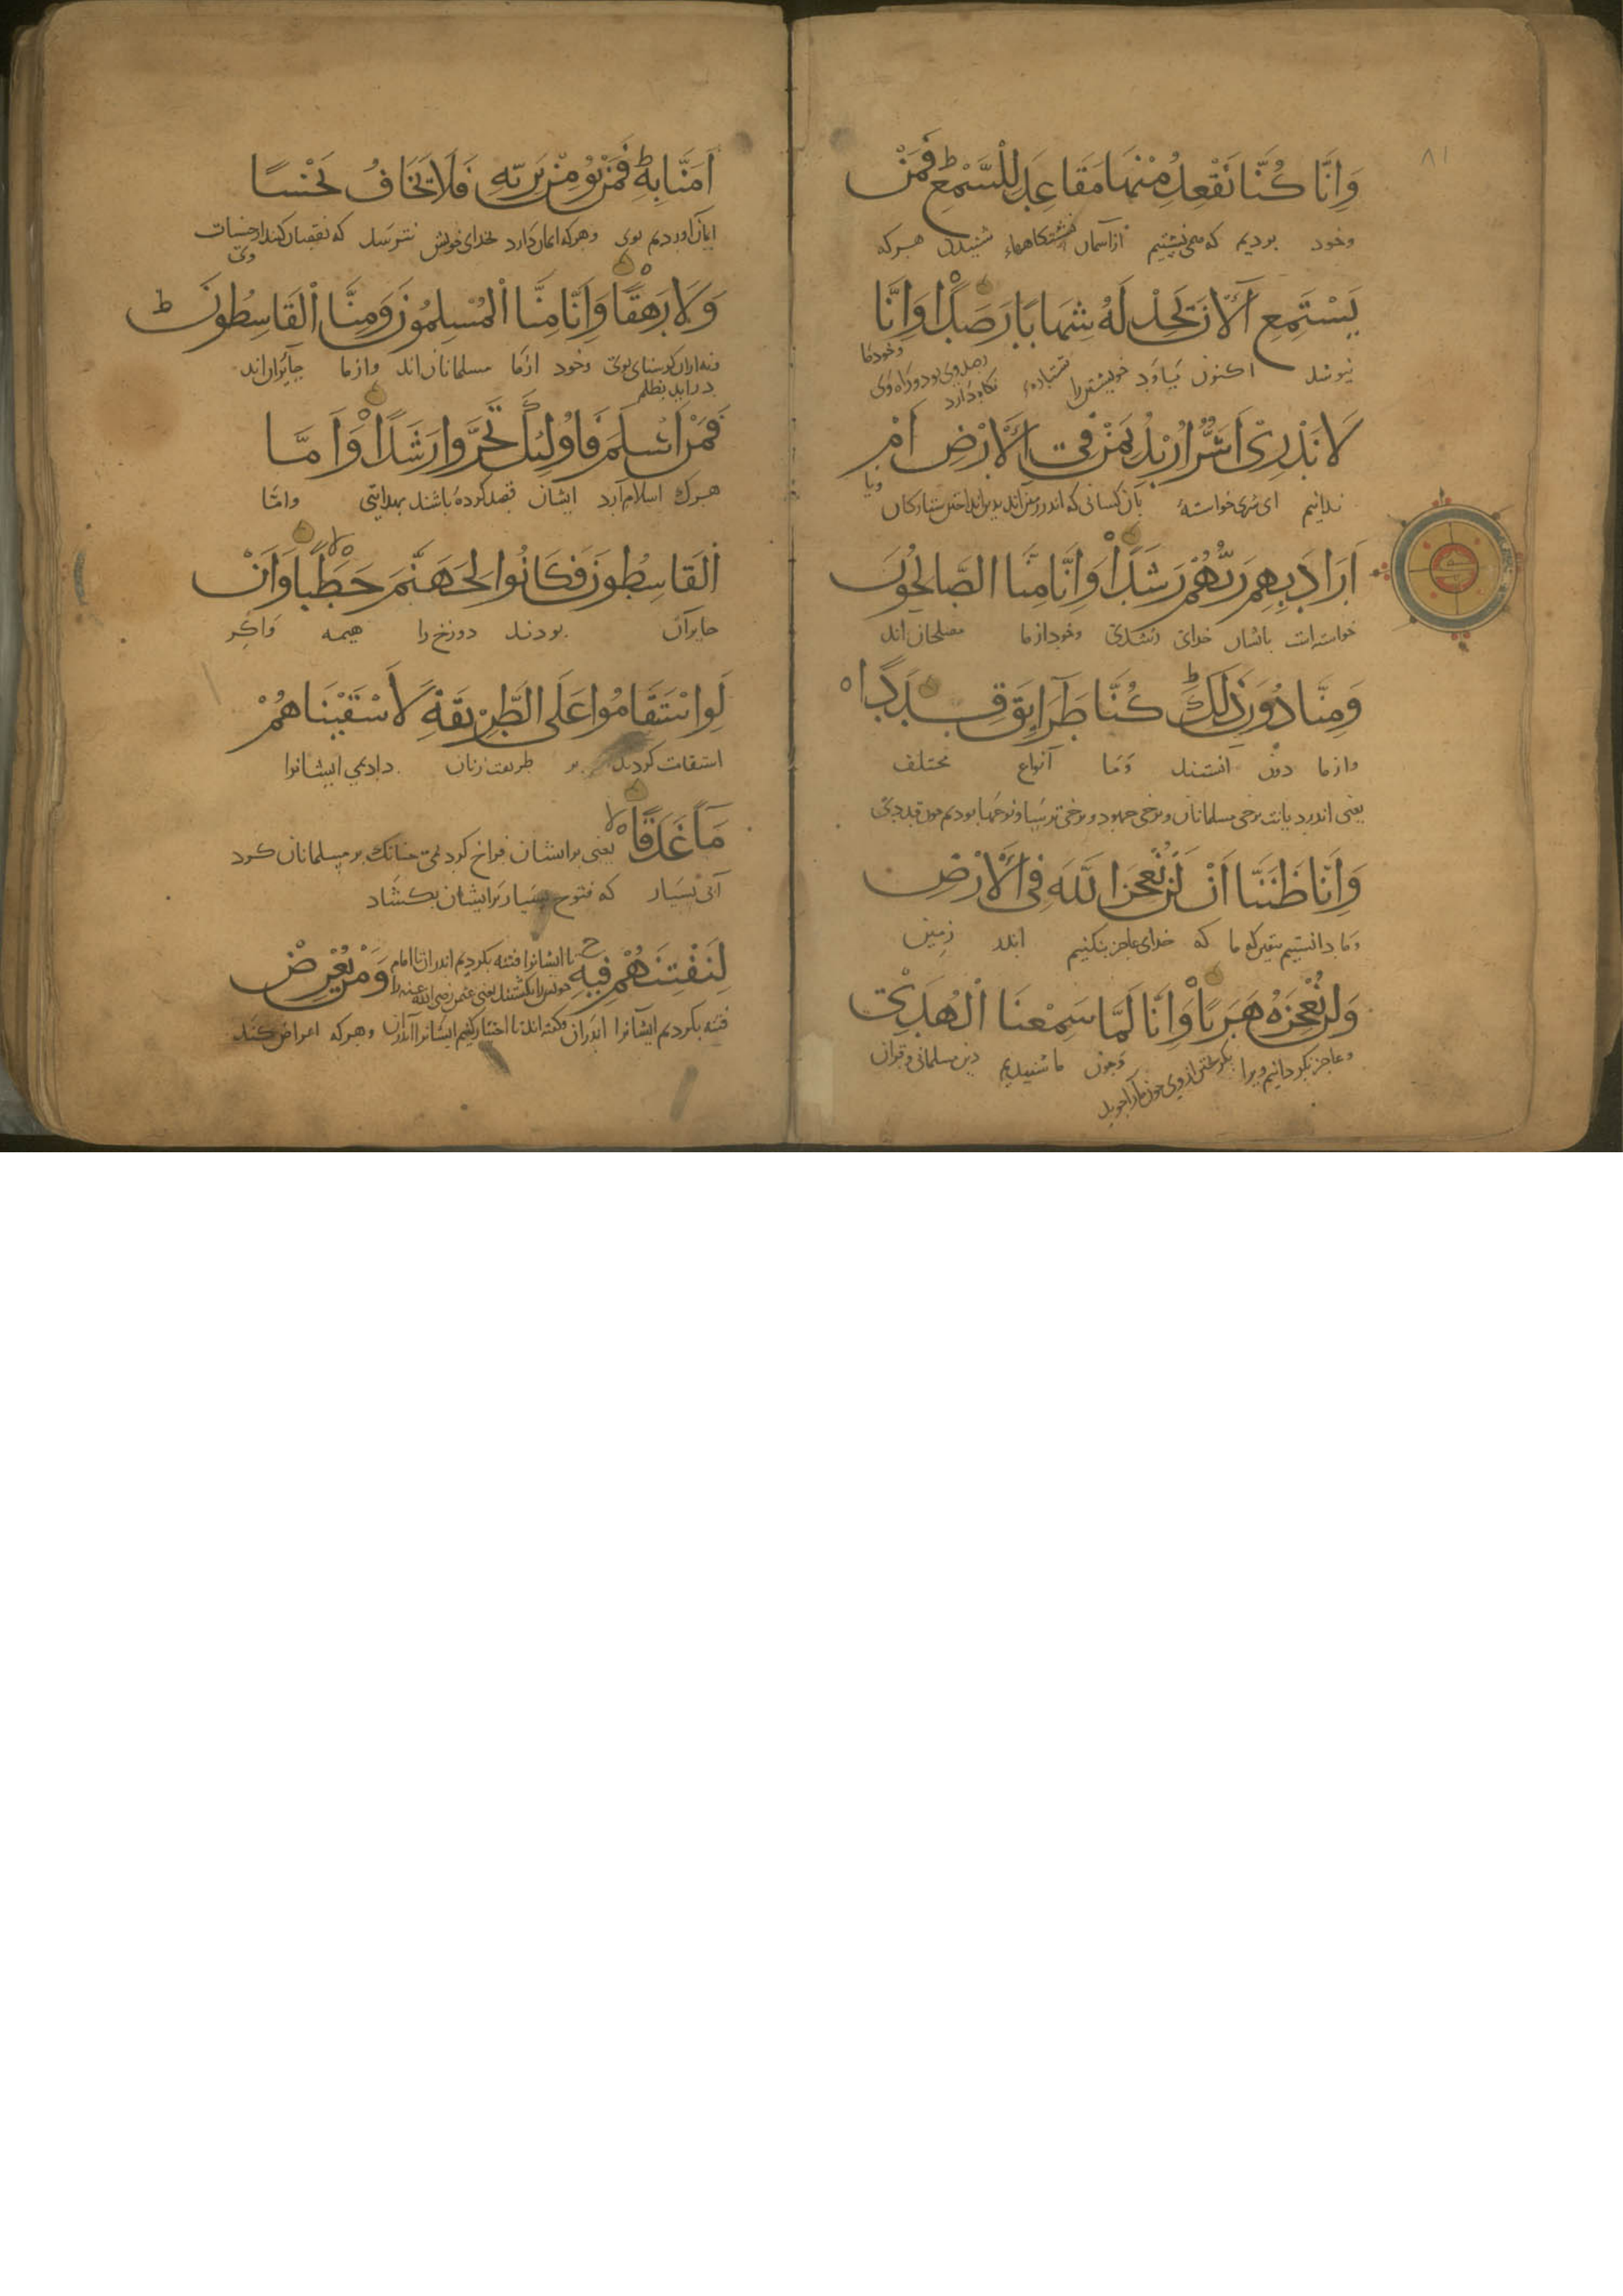 ٨١
وَاَنَّا كُنَّا نَقْعُدُ مِنْهَا مَقَاعِدَ لِلسَّمْعِ ط فَمَنْ
وخود بودیم که می نشستیم از آسمان نشستگاههاء شنیدن هرکه
يَسْتَمِعِ الْآنَ يَجِدْ لَهُ شِهَابًا رَصَدًا وَاَنَّا
نیوشد اکنون بیاود خویشتن را نگاه دارد وخود ما
لَا نَدْرِى اَشَرٌّ اُرِيْدُ بِمَنْ فِى الْاَرْضِ اَمْ
ندانیم ای شری خواسته بآن کسانی که اندر زمین اند بدین انداختن ستارگان ویا
اَرَادَ بِهِمْ رَبُّهُمْ رَشَدًا وَاَنَّا مِنَّا الصَّالِحُوْنَ
خواسته است باشان خدای وخود از ما مصلحان اند
وَمِنَّا دُوْنَ ذٰلِكَ ط كُنَّا طَرَآيِقَ قِدَدًا ه
واز ما دون وما انواع مختلف
یعنی اندر دیانت برخی مسلمانان وبرخی جهود وبرخی ترسا بودیم
وَاَنَّا ظَنَنَّا اَنْ لَنْ نُعْجِزَ اللّٰهَ فِى الْاَرْضِ
وما دانستیم که خدای عاجز نکنیم اندر زمین
وَلَنْ نُعْجِزَهُ هَرَبًا وَاَنَّا لَمَّا سَمِعْنَا الْهُدٰى
وعاجز نگردانیم ویرا بگریختن از وی چون ما را جوید وچون ما شنیدیم دین مسلمانی وقران
اٰمَنَّا بِهِ ط فَمَنْ يُؤْمِنْ بِرَبِّهِ فَلَا يَخَافُ بَخْسًا
ایمان اوردیم بوی وهرکه ایمان دارد بخدای خویش نترسد که نقصان کند از حسنات وی
وَلَا رَهَقًا ه وَاَنَّا مِنَّا الْمُسْلِمُوْنَ وَمِنَّا الْقَاسِطُوْنَ ط
وخود از ما مسلمانان اند واز ما جایران اند
در اید بظلم
فَمَنْ اَسْلَمَ فَاُولٰئِكَ تَحَرَّوْا رَشَدًا وَاَمَّا
هرک اسلام آرد ایشان قصد کرده باشند بهدایتی واما
الْقَاسِطُوْنَ فَكَانُوْا لِجَهَنَّمَ حَطَبًا وَاَنْ
جایران بودند دوزخ را هیمه واگر
لَوِ اسْتَقَامُوْا عَلَى الطَّرِيْقَةِ لَاَسْقَيْنَاهُمْ
استقامت کردند بر طریقت دادیمی ایشانرا
مَآءً غَدَقًا ه لا یعنی بر ایشان فراخ کردیمی چنانک بر مسلمانان کرد
آبی بسیار که فتوح بسیار بر ایشان بگشاد
لِنَفْتِنَهُمْ فِيْهِ تا ایشانرا فتنه بکردیم اندران تا امام خویش را بکشتند یعنی عثمن رضی الله عنه را وَمَنْ يُعْرِضْ
فتنه بکردیم ایشانرا اندران وهرکه اعراض کند